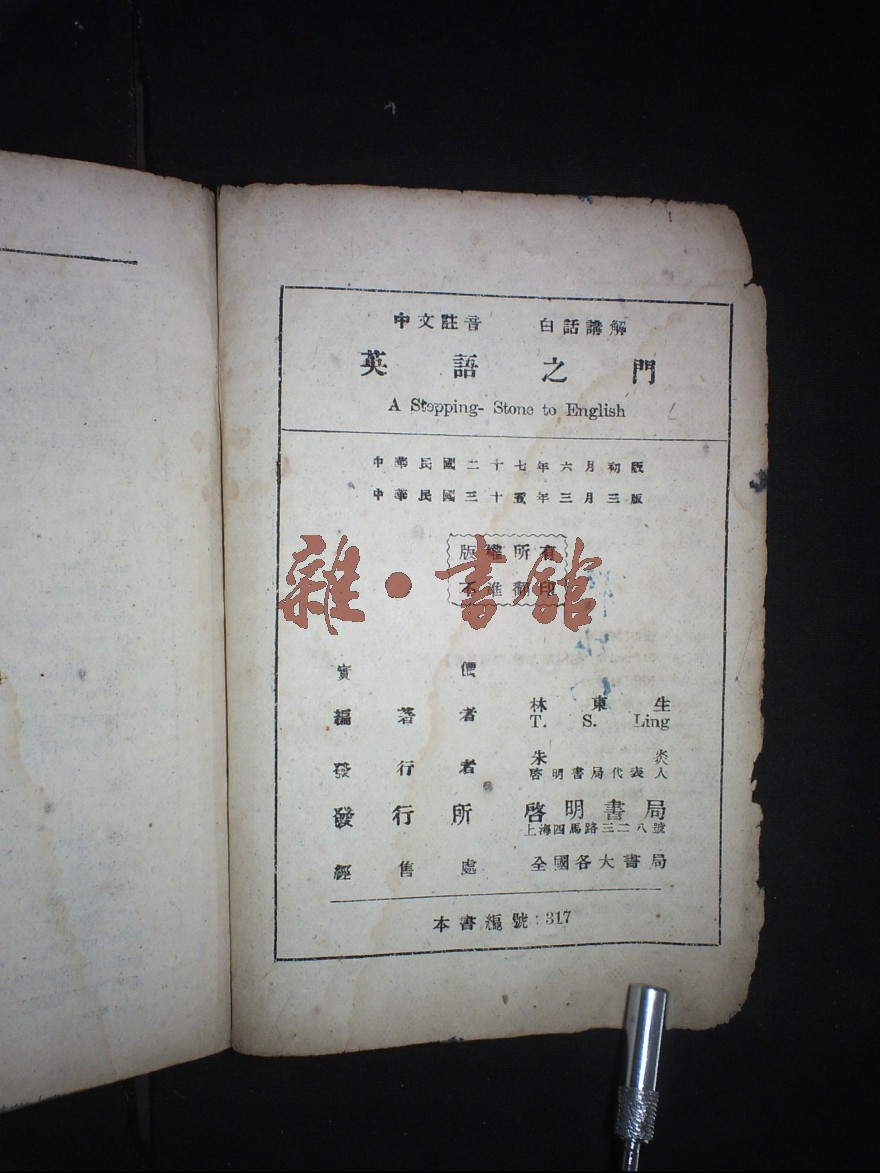 中文註音 白話講解
英語之門
A Stepping- Stone to English
中華民國二十七年六月初版
中華民國三十五年三月三版
版權所有
不准翻印
雜·書館
實價
編著者 林東生
T. S. Ling
發行者 朱炎
啓明書局代表人
發行所 啓明書局
上海四馬路三二八號
經售處 全國各大書局
本書編號:317